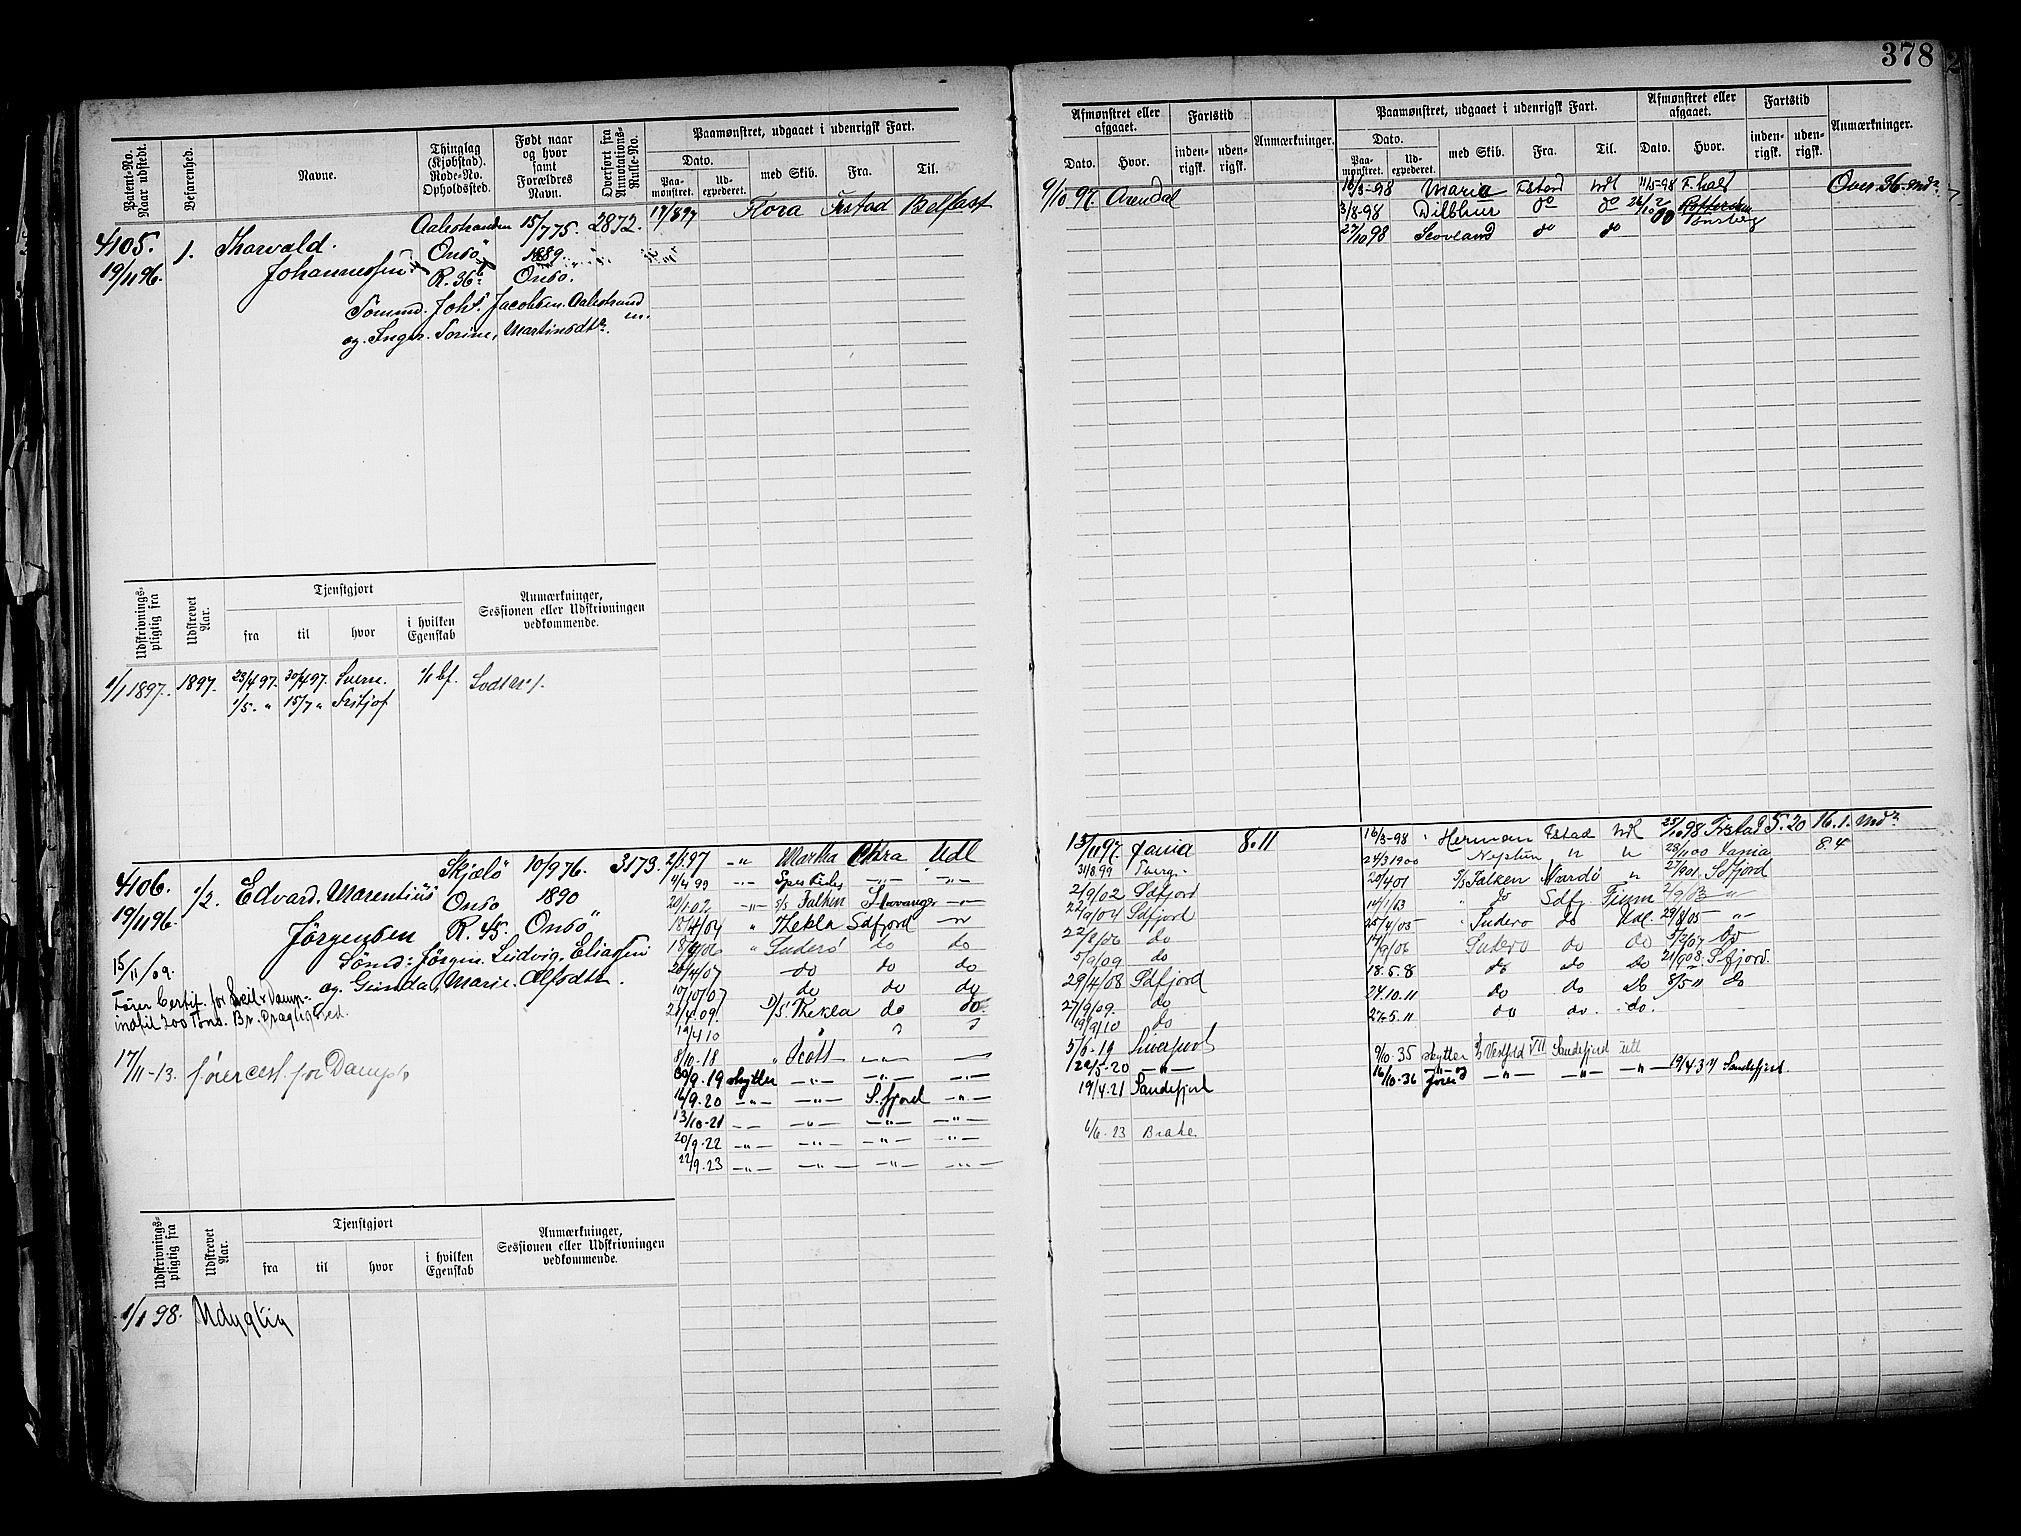 378
Patent-No. Naar udstedt.
Befarenhed.
Navne.
Thinglag (Kjøbstad). Rode-No. Opholdssted.
Født naar og hvor samt Forældres Navn.
Overført fra Annotations-Rulle-No.
Paamønstret, udgaaet i udenrigsk Fart.
Dato.
Paa-mønstret.
Ud-expederet.
med Skib.
Fra.
Til.
Afmønstret eller afgaaet.
Dato.
Hvor.
Fartstid
inden-rigsk.
uden-rigsk.
Anmærkninger.
Paamønstret, udgaaet i udenrigsk Fart.
Dato.
Paa-mønstret.
Ud-expederet.
med Skib.
Fra.
Til.
Afmønstret eller afgaaet.
Dato.
Hvor.
Fartstid
inden-rigsk.
uden-rigsk.
Anmærkninger.
4105. 1. Thorvald Aalestranden 15/7 75. 2872. 17/8 97 Flora Frstad Belfast
19/11 96. Johannessen Onsö 1889.
R. 36 Onsö.
Sömmd. Johs. Jacobsen. Aalestrand
og Inger Sorine, Martinsdtr.
9/10 97. Arendal
16/3-98 Maria Fstad Udl 11/5-98 F.hald Over 36 mdr
3/8-98 Dilbhur do do
27/10 98 Skovland do do Tönsberg
Udskrivnings-pligtig fra
Udskrevet Aar.
Tjenstgjort
fra
til
hvor
i hvilken Egenskab
Anmærkninger, Sessionen eller Udskrivningen vedkommende.
1/1 1897. 1897. 23/4 97. 30/4 97. Sverre. 1/1 bf.
1/5 " 15/7 " Fritjof
4106. 1/2. Edvard. Marentius Skjælö 10/9 76. 3173.
19/11 96. Jörgensen Onsö 1890
R. 45. Onsö
Sömd: Jörgen Ludvig, Eliassen
og Gunda, Marie. Olfsdtr.
15/11 09.
Fører Certif. for Seil & Damp-
indtil 200 Tons. Br. Drægtighed.
17/11-13. førercert. for Dampsk.
2/1.97 -"- Martha Chra Udl
11/4 99 -"- -"- -"-
20/1.02 -"- s/s Falken Stavanger -"-
18/4/04 " Thekla Sdfjord -"-
18/9/06 " Suderö do do
20/4/07 do do do
10/10/07 do do do
21/4.09 D/S. Thekla do do
19/4 10 " "
8/10.18 " Scott -"- -"-
30/9.19 skytter -"- -"- -"-
16/9.20 -"- -"- S.fjord -"-
13/10-21 -"- -"- -"- -"-
20/9.22 -"- -"- -"- -"-
22/9.23 -"- -"- -"- -"-
13/11 97. Fania 8.11
31/8.99 Tberg.
2/9/02 Sdfjord
22/9/04 Sdfjord
22/8/06 do
5/9/09 do
29/4/08 Sdfjord
27/9/09. do
19/9/10 do
5/6-19 Liverpool
12/5-20 -"-
19/4.21 Sandefjord
6/6.23 Brake.
16/3-98 Herman Fstad Udl 25/10 98 Frstad 5.20 16.1. mdr
24/3 1900 Neptun " " 23/11 00 Fania 8.4
20/4 01 S/S Falken Vardö " 27/9 01. Sdfjord
14/1/03 " do Sdfj Finm 2/9/03 "
25/4/05 " Suderö do Udl. 29/8/05 -"-
17/9/06 Suderö do do 5/3/07 do
18.5.8 do do do 21/9 08. S.fjord.
24.10.11 do do do 8/5 11 do
27.5.11 do do. do.
9/10.35 skytter Vestfold VII Sandefjord utl
16/10.36 -"- -"- -"- 19/4.37 Sandefjord
Udskrivnings-pligtig fra
Udskrevet Aar.
Tjenstgjort
fra
til
hvor
i hvilken Egenskab
Anmærkninger, Sessionen eller Udskrivningen vedkommende.
1/1 98. Udygtig